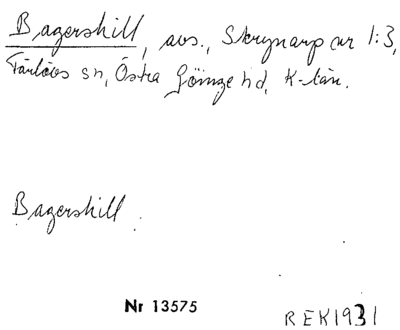 Bagershill, avs., Skrynarp nr 1:3,
Färlövs sn, Östra Göinge hd, K-län.
Bagershill
Nr 13575
REK 1931